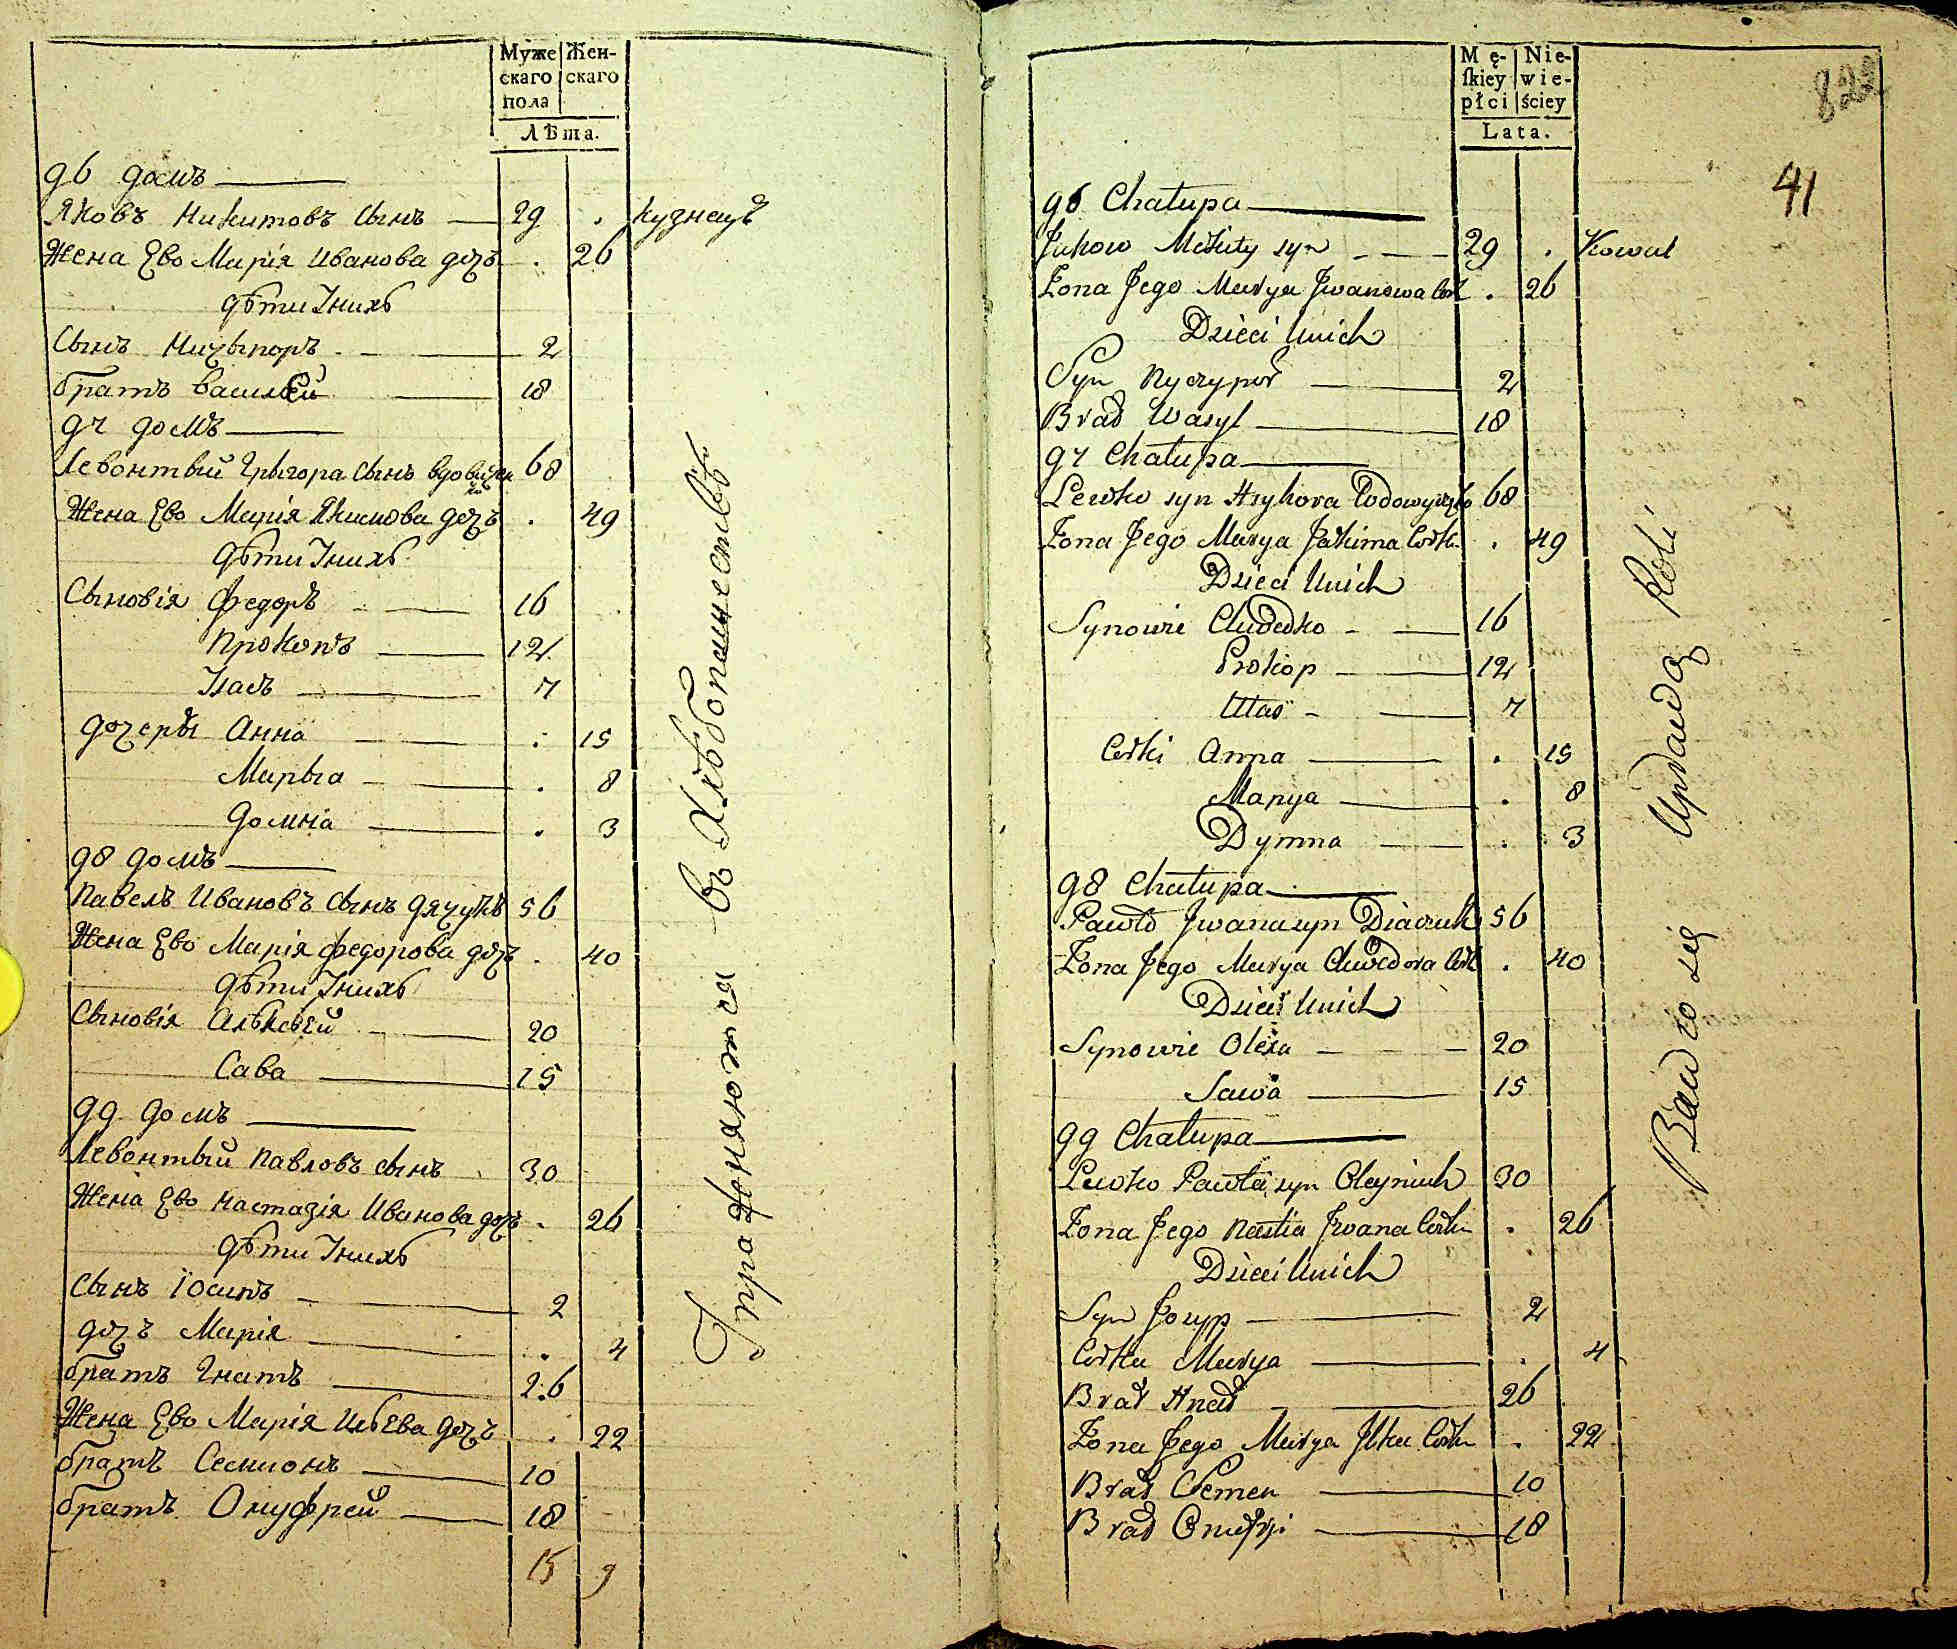 Муже Жен-
скаго скаго
пола
Лѣта.
96 домъ
Яковъ Никитовъ сынъ 29 . кузнецъ
Жена Ево Марія Иванова дочь . 26
дѣти Iнихъ
Сынъ Ничыпоръ 2
братъ Василей 18
97 домъ
Левонтый Грыгора сынъ 68
Жена Ево Марія Якимова дочъ . 49
Дѣти Iнихъ
Сыновія Федоръ 16
Прокопъ 12
Iласъ 7
дочеры Анна . 15
Марыа . 8
Домна . 3
98 домъ
Павелъ Ивановъ сынъ дячукъ 56
Жена Ево Марія Федорова дочъ . 40
дѣти Iнихъ
Сыновія Алѣксѣей 20
Сава 15
99 домъ
Левонтый Павловъ сынъ 30
Жена Ево Настазія Иванова дочъ . 26
дѣти Iнихъ
Сынъ Iосипъ 2
дочъ Марія . 4
братъ Гнатъ 26
Жена Ево Марія Ильева дочъ . 22
братъ Семионъ 10
братъ Онуфрей 18
15 9
Iпражняются въ Хлѣбопашествѣ
Mę- Nie-
ſkiey wie-
płci ściey
Lata.
41
96 Chałupa
Jakow Mikity syn 29 . Kowal
Żona Jego Marya Jwanowa Cork . 26
Dzieci Unich
Syn Nyczypor 2
Brat Wasyl 18
97 Chałupa
Lewko syn Hryhora 68
Żona Jego Marya Jakima Corka . 49
Dzieci Unich
Synowie Chwedko 16
Prokop 12
Ułas 7
Corki Anna . 15
Marya . 8
Dymna . 3
98 Chałupa
Pawło Jwana syn Diaczuk 56
Żona Jego Marya Chwedora Cork . 40
Dzieci Unich
Synowie Olexa 20
Sawa 15
99 Chałupa
Lewko Pawła syn Oleynick 30
Żona Jego Nastia Jwana Corka . 26
Dzieci Unich
Syn Jozyp 2
Corka Marya . 4
Brat Hnat 26
Żona Jego Marya Jlka Corka . 22
Brat Semen 10
Brat Onufryi 18
Bawio się Uprawą Roli